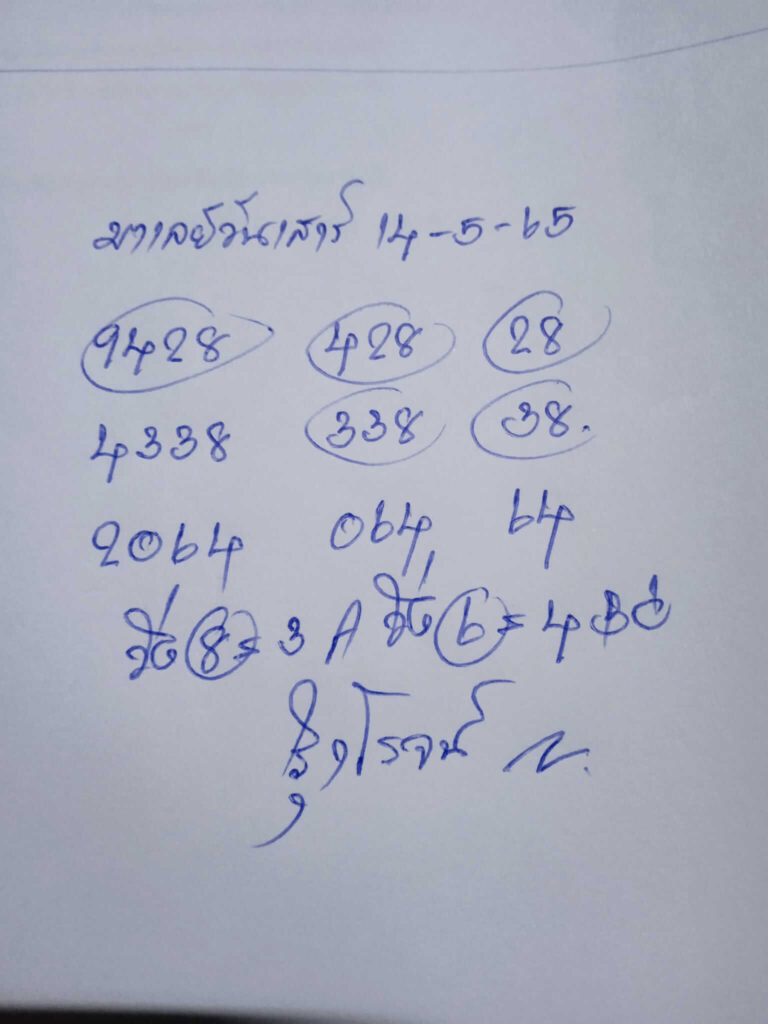 มาเลย์วันเสาร์ 14-5-65
9428 428 28
4338 338 38.
2064 064 64
วิ่ง 8 = 3 A วิ่ง 6 = 4
รุ่งโรจน์